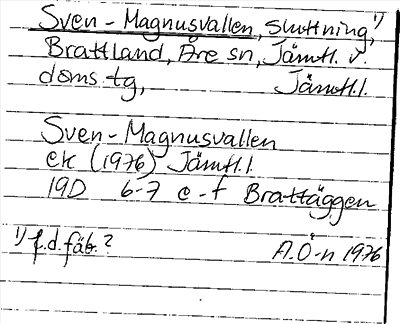 Sven-Magnusvallen, sluttning,¹⁾
Brattland, Åre sn, Jämtl. v.
doms.tg, Jämtl.l.
Sven-Magnusvallen
ek (1976) Jämtl.l
19D 6-7 e-f Brattäggen
¹⁾ f.d.fäb.? A.Ö-n 1976